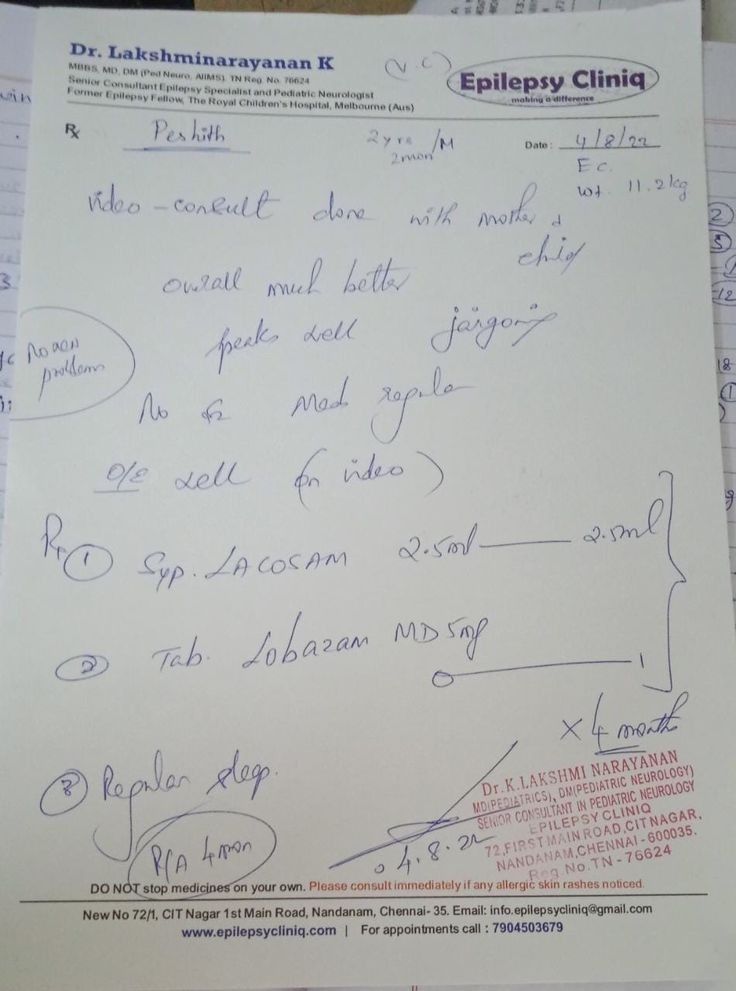 Dr. Lakshminarayanan K
MBBS, MD, DM (Ped Neuro, AIIMS), TN Reg. No. 76624
Senior Consultant Epilepsy Specialist and Pediatric Neurologist
Former Epilepsy Fellow, The Royal Children's Hospital, Melbourne (Aus)
(V.C)
Epilepsy Cliniq
making a difference
Rx Peshith 2yrs 2mon /M Date: 4/8/22
E c.
Wt. 11.2kg
video - consult done with mother &
child
overall much better
speaks well jargoning
No new
problems
No Meds regular
O/E well (on video)
Rx ① Syp. LACOSAM 2.5ml — 2.5ml
② Tab. Lobazam MD 5mg
0 — 1
x 4 months
③ Regular sleep.
R/A 4 mon
4.8.22
Dr.K.LAKSHMI NARAYANAN
MD(PEDIATRICS), DM(PEDIATRIC NEUROLOGY)
SENIOR CONSULTANT IN PEDIATRIC NEUROLOGY
EPILEPSY CLINIQ
72,FIRST MAIN ROAD,CIT NAGAR,
NANDANAM,CHENNAI - 600035.
Reg.No.TN - 76624
DO NOT stop medicines on your own. Please consult immediately if any allergic skin rashes noticed.
New No 72/1, CIT Nagar 1st Main Road, Nandanam, Chennai- 35. Email: info.epilepsycliniq@gmail.com
www.epilepsycliniq.com | For appointments call : 7904503679